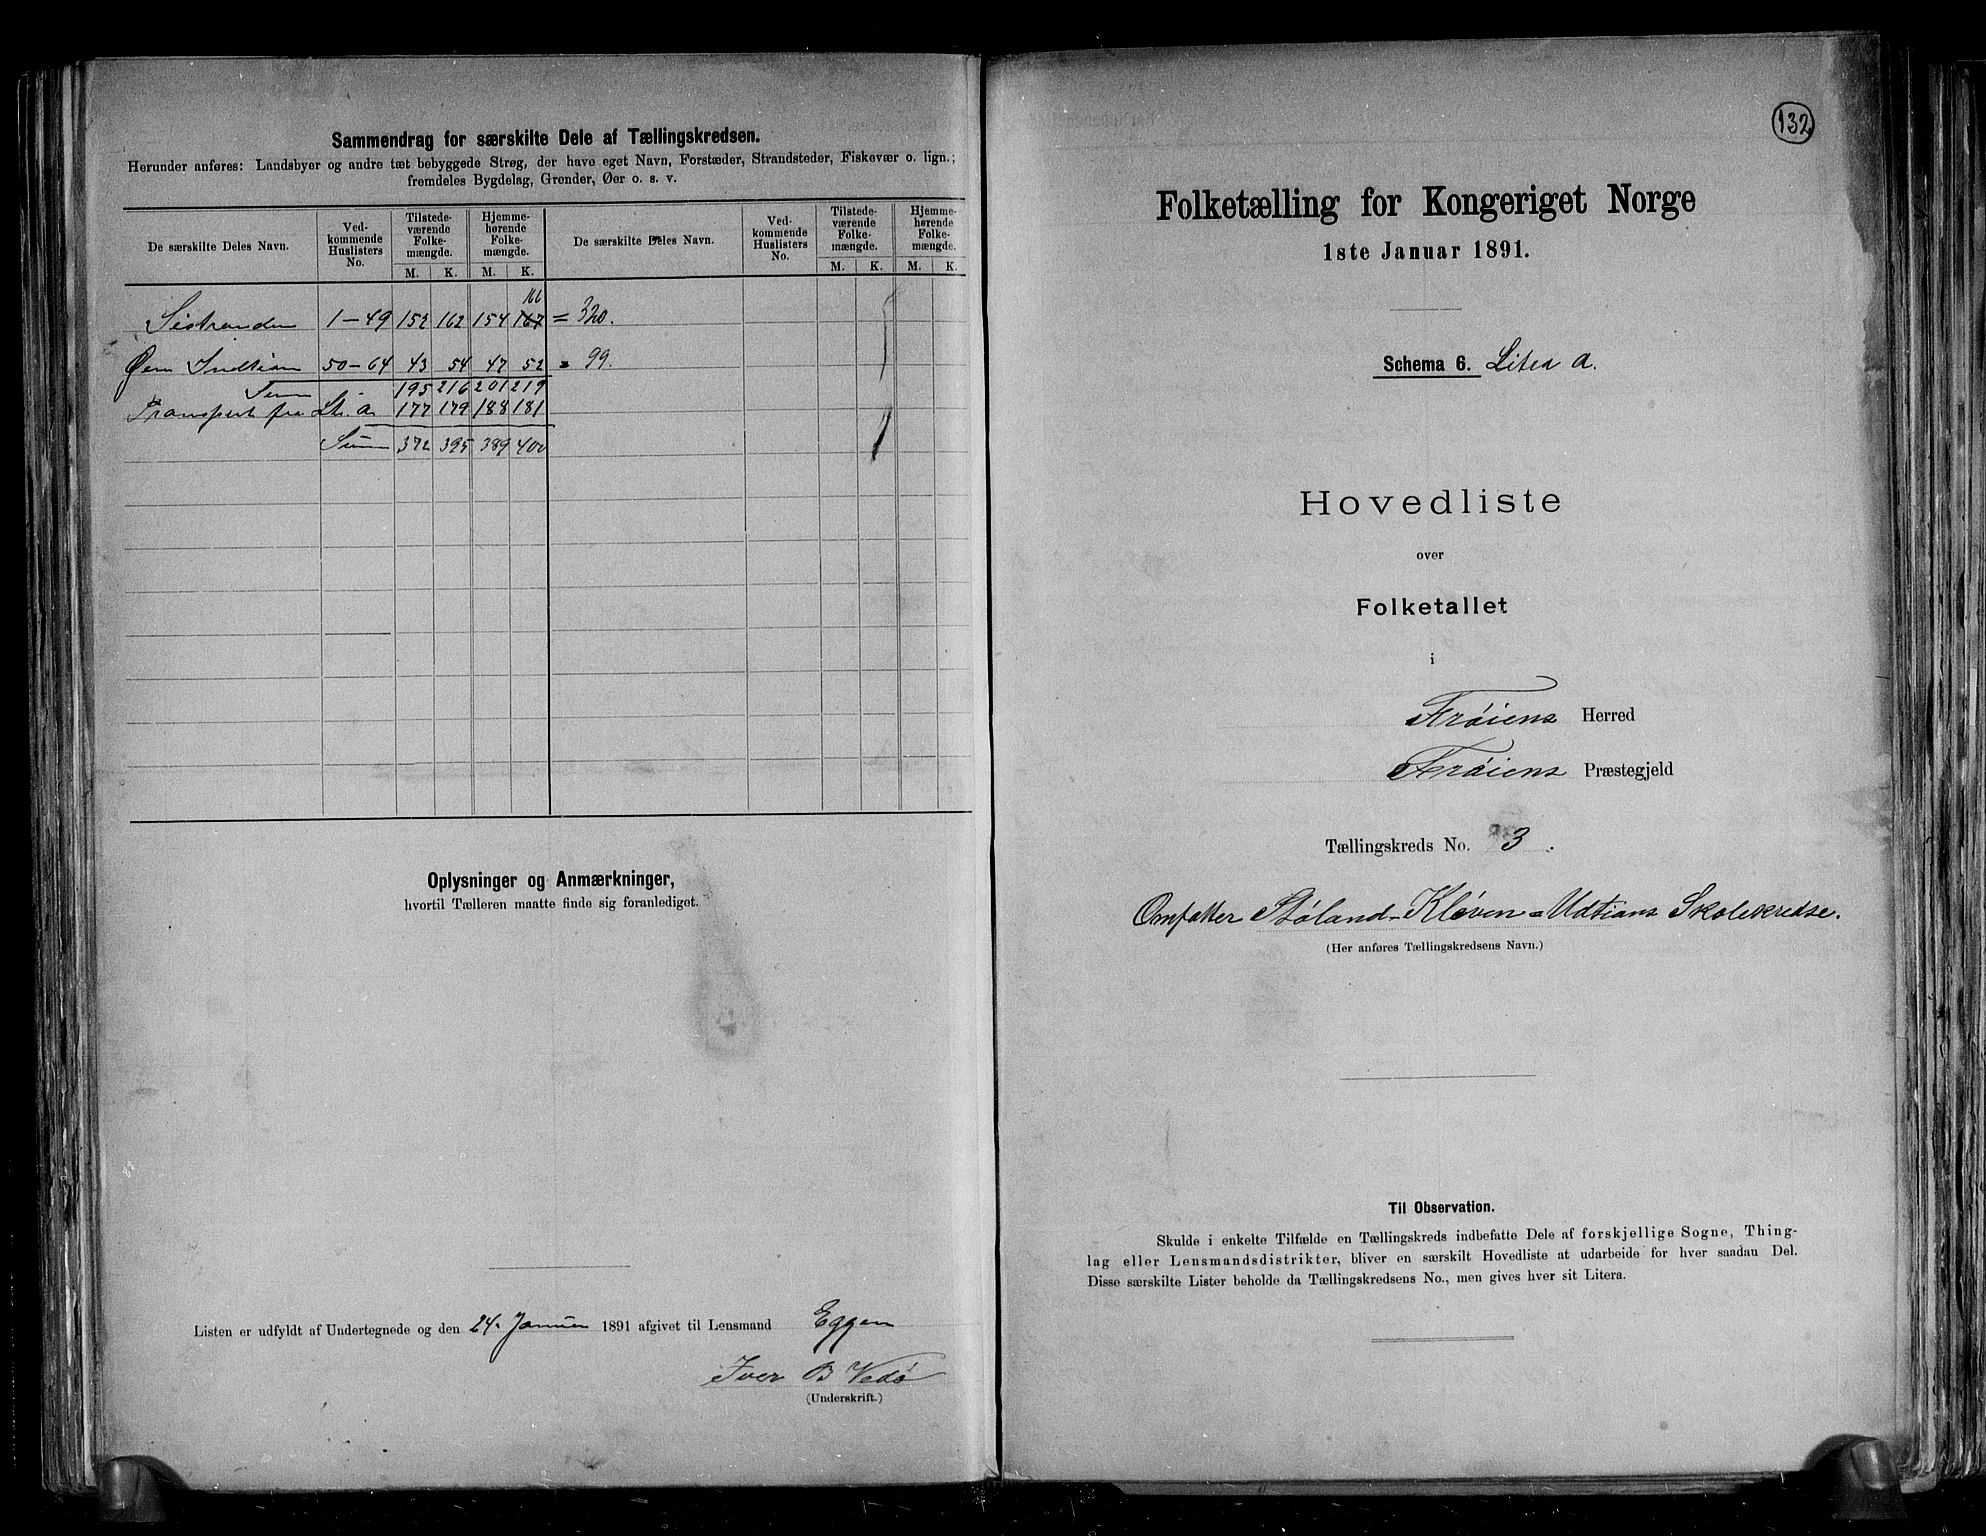 Sammendrag for særskilte Dele af Tællingskredsen.
Herunder anføres: Landsbyer og andre tæt bebyggede Strøg, der have eget Navn, Forstæder, Strandsteder, Fiskevær o. lign.;
fremdeles Bygdelag, Grender, Øer o. s. v.
De særskilte Deles Navn. Ved-kommende Huslisters No. Tilstede-værende Folke-mængde. Hjemme-hørende Folke-mængde. De særskilte Deles Navn. Ved-kommende Huslisters No. Tilstede-værende Folke-mængde. Hjemme-hørende Folke-mængde.
M. K. M. K. M. K. M. K.
166
Sistranden 1-49 152 162 154 167 = 320.
Øen Indtian 50-64 43 54 47 52 = 99.
Sum 195 216 201 219
Transport fra Lit. a 177 179 188 181
Sum 372 395 389 400
Oplysninger og Anmærkninger,
hvortil Tælleren maatte finde sig foranlediget.
Listen er udfyldt af Undertegnede og den 24. Januar 1891 afgivet til Lensmand Eggen
Iver B Vedø
(Underskrift.)
132
Folketælling for Kongeriget Norge
1ste Januar 1891.
Schema 6. Litra a.
Hovedliste
over
Folketallet
i
Frøiens Herred
Frøiens Præstegjeld
Tællingskreds No. 3.
Omfatter Støland-Kløven-Udtians Skolekredse.
(Her anføres Tællingskredsens Navn.)
Til Observation.
Skulde i enkelte Tilfælde en Tællingskreds indbefatte Dele af forskjellige Sogne, Thing-
lag eller Lensmandsdistrikter, bliver en særskilt Hovedliste at udarbeide for hver saadan Del.
Disse særskilte Lister beholde da Tællingskredsens No., men gives hver sit Litera.